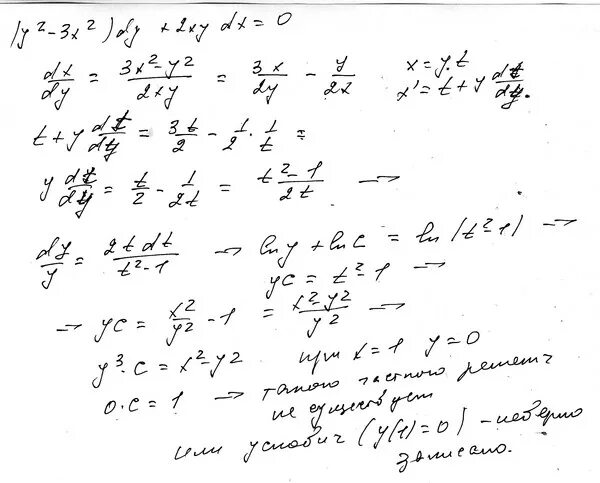 (y² - 3x²) dy + 2xy dx = 0
dx/dy = (3x² - y²)/(2xy) = 3x/(2y) - y/(2x)    x = y·t
x' = t + y dt/dy.
t + y dt/dy = 3t/2 - 1/2 · 1/t =
y dt/dy = t/2 - 1/(2t) = (t² - 1)/(2t) →
dy/y = (2t dt)/(t² - 1) → ln y + ln C = ln (t² - 1) →
yC = t² - 1 →
→ yC = x²/y² - 1 = (x² - y²)/y² →
y³·C = x² - y²    при x = 1 y = 0
0·C = 1 → такого частного решения
не существует
или условие (y(1) = 0) - неверно
записано.